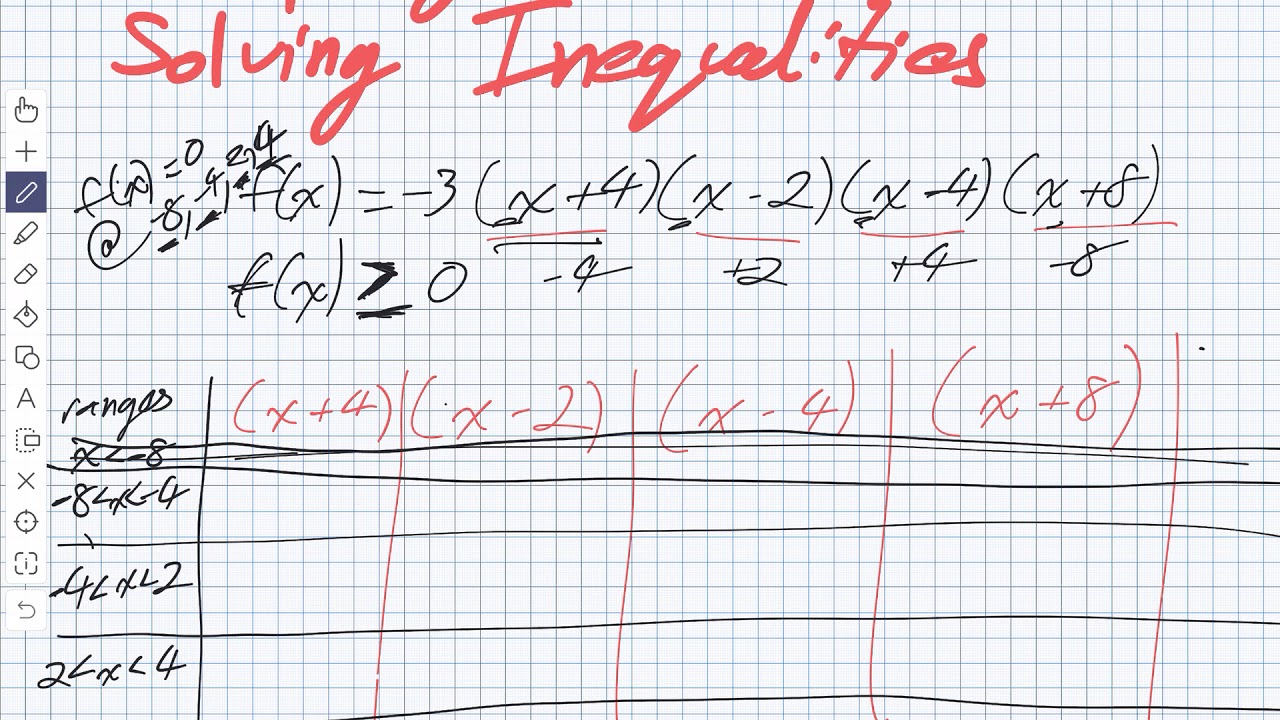 Solving Inequalities
f(x)=0 @ -8, -4, 2, 4
f(x) = -3 (x+4)(x-2)(x-4)(x+8)
-4 +2 +4 -8
f(x) ≥ 0
ranges (x+4) (x-2) (x-4) (x+8)
x<-8
-8<x<-4
-4<x<2
2<x<4